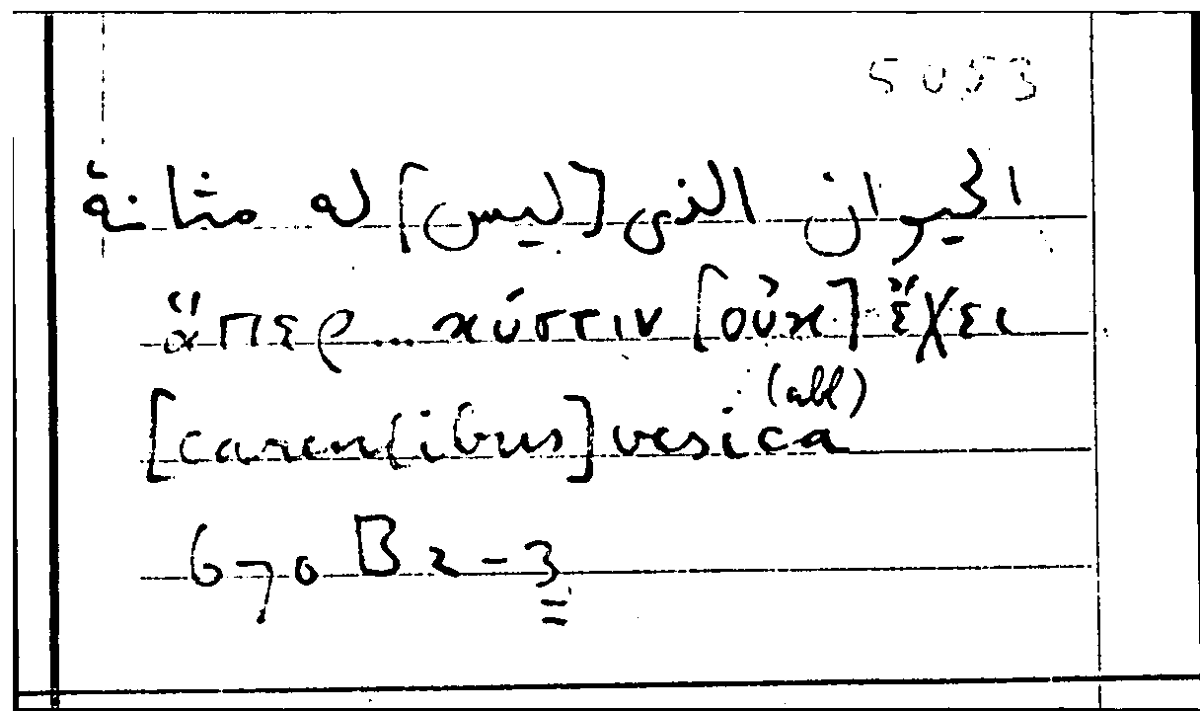 5053
الحيوان الذى [ليس] له مثانة
ἅπερ... κύστιν [οὐκ] ἔχει
(abl)
[carentibus] vesica
670 B 2-3